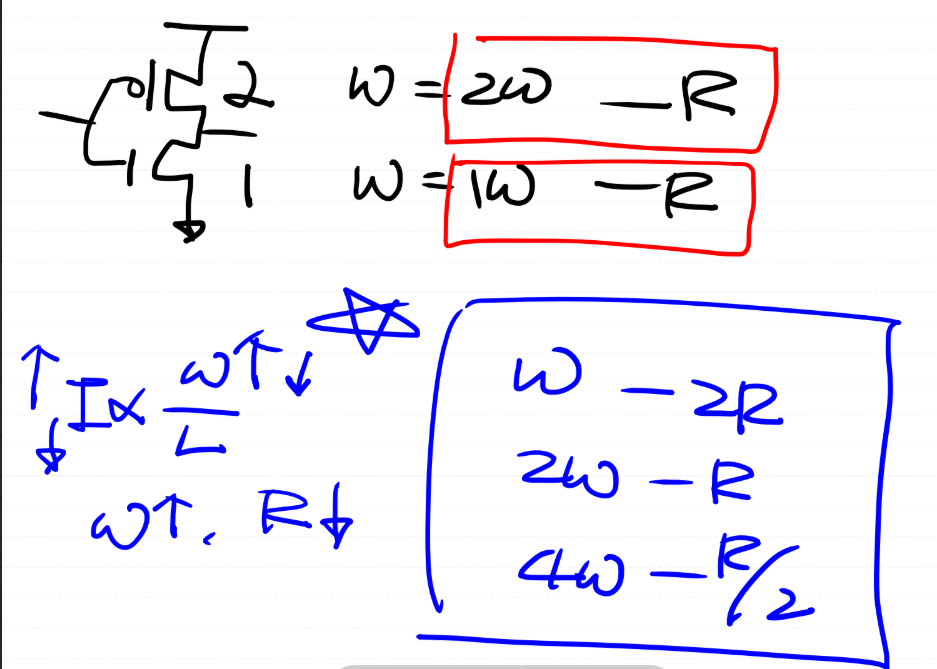 2 W = 2W — R
1 W = 1W — R
↑↓ I ∝ W↑↓ / L
W↑, R↓
W — 2R
2W — R
4W — R/2